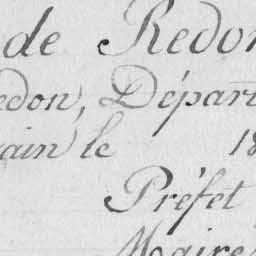 de Redon
edon, Départ
ain le 18
Préfet
Maire